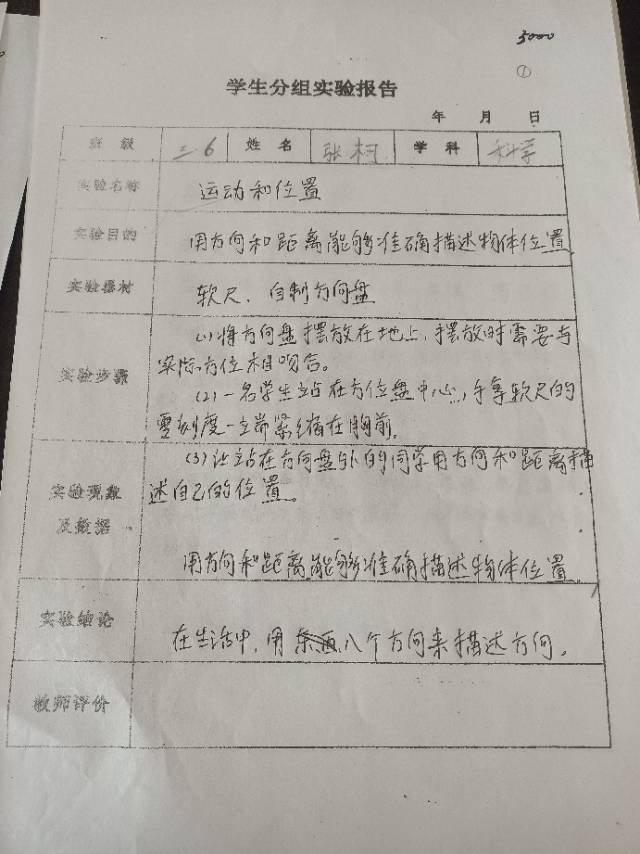 5000
①
学生分组实验报告
年 月 日
班级 三.6 姓名 张柯 学科 科学
实验名称 运动和位置
实验目的 用方向和距离能够准确描述物体位置
实验器材 软尺、自制方向盘
(1)将方向盘摆放在地上,摆放时需要与
实验步骤 实际方位相吻合。
(2)一名学生站在方位盘中心,手拿软尺的
零刻度一立端紧缩在胸前。
(3)让站在方向盘外的同学用方向和距离描
实验现象 述自己的位置。
及数据
用方向和距离能够准确描述物体位置
实验结论
在生活中,用八个方向来描述方向。
教师评价